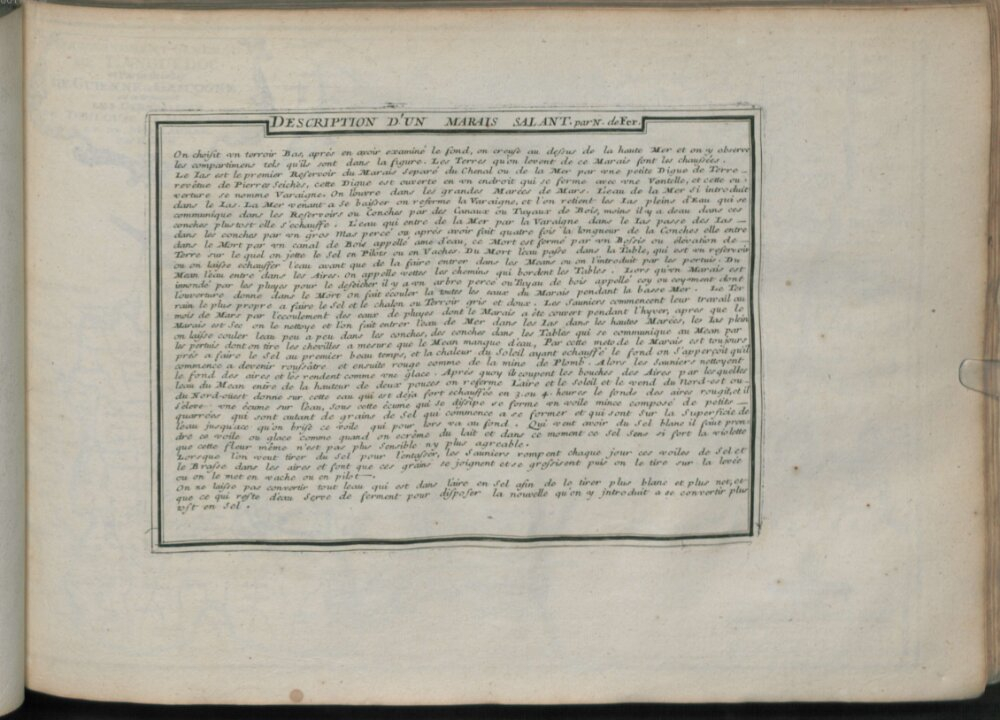 DESCRIPTION D'UN MARAIS SALANT. par N. de Fer.
On choisit vn terroir Bas, aprés en avoir examiné le fond, on creuse au dessus de la haute Mer et on y observe
les compartimens tels qu'ils sont dans la figure. Les Terres qu'on levent de ce Marais font les chaussées.
Le Ias est le premier Reservoir du Marais Separé du Chenal ou de la Mer par vne petite Digue de Terre
revétue de Pierres Seiches, cette Digue est ouverte en vn endroit qui se ferme avec vne Vantelle, et cette ou-
verture se nomme Varaigne. On l'ouvre dans les grandes Marées de Mars. L'eau de la Mer s'i introduit
dans le Ias. La Mer venant a se baisser on referme la Varaigne, et l'on retient les Ias pleins d'Eau qui se
communique dans les Reservoirs ou Conches par des Canaux ou Tuyaux de Bois, moins il y a d'eau dans ces
conches plustost elle s'echauffe. L'eau qui entre de la Mer par la Varaigne dans le Ias passe des Ias
dans les conches par vn gros Mas percé ou aprés avoir fait quatre fois la longueur de la Conches elle entre
dans le Mort par vn canal de Bois appellé ame d'eau, ce Mort est formé par vn Bossis ou élévation de
Terre sur le quel on jette le Sel en Pilots ou en Vaches. Du Mort l'eau passe dans la Table, qui est vn reservoir
ou on laisse echauffer l'eau avant que de la faire entrer dans les Means ou on l'introduit par les pertuis. Du
Mean l'eau entre dans les Aires. On appelle vettes les chemins qui bordent les Tables. Lors qu'vn Marais est
inondé par les pluyes pour le desseicher il y a vn arbre percé ou Tuyau de bois appellé coy ou coy-ment dont
l'ouverture donne dans le Mort on fait écouler la toutes les eaux du Marais pendant la basse Mer. Le Ter
rain le plus propre a faire le Sel et le chalon ou Terroir gris et doux. Les Sauniers commencent leur travail au
mois de Mars par l'ecoulement des eaux de pluyes dont le Marais a éte couvert pendant l'hyver, apres que le
Marais est Sec on le nettoye et l'on fait entrer l'eau de Mer dans les Ias dans les hautes Marées, les Ias plein
on laisse couler l'eau peu a peu dans les conches, des conches dans les Tables qui se communique au Mean par
les pertuis dont on tire les chevilles a mesure que le Mean manque d'eau, Par cette metode le Marais est toujours
prés a faire le Sel au premier beau temps, et la chaleur du Soleil ayant echauffé le fond on s'apperçoit qu'il
commence a devenir roussâtre et ensuite rouge comme de la mine de Plomb. Alors les Sauniers nettoyent
le fond des aires et les rendent comme vne glace. Aprés quoy ils coupent les bouches des Aires par lesquelles
l'eau du Mean entre de la hauteur de deux pouces on referme l'aire et le Soleil et le vend du Nord-est ou
du Nord-ouest donne sur cette eau qui est déja fort echauffée en 3. ou 4. heures le fonds des aires rougit, et il
s'éleve vne écume sur l'eau, sous cette écume qui se dissipe se forme vn voile mince composé de petits
quarrées qui sont autant de grains de Sel qui commence a se former et qui sont Sur la Superficie de
l'eau jusqu'ace qu'on brise ce voile qui pour lors va au fond. Qui veut avoir du Sel blanc il faut pren
dre ce voile ou glace comme quand on ecrême du lait et dans ce moment ce Sel Sens si fort la violette
que cette fleur même n'est pas plus sensible ny plus agreable.
Lorsque l'on veut tirer du Sel pour l'entasser, les Sauniers rompent chaque jour ces voiles de Sel et
le Brasse dans les aires et font que ces grains se joignent et se grossissent puis on le tire sur la levée
ou on le met en vache ou en pilot
On ne laisse pas convertir tout l'eau qui est dans l'aire en Sel afin de le tirer plus blanc et plus net, et
que ce qui reste d'eau Serve de ferment pour disposer la nouvelle qu'on y introduit a se convertir plus
tost en Sel.